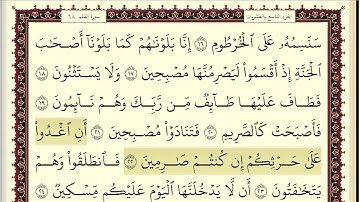 الجزء التاسع والعشرون سورة القلم ٦٨
سَنَسِمُهُۥ عَلَى ٱلْخُرْطُومِ ١٦ إِنَّا بَلَوْنَٰهُمْ كَمَا بَلَوْنَآ أَصْحَٰبَ
ٱلْجَنَّةِ إِذْ أَقْسَمُوا۟ لَيَصْرِمُنَّهَا مُصْبِحِينَ ١٧ وَلَا يَسْتَثْنُونَ ١٨
فَطَافَ عَلَيْهَا طَآئِفٌ مِّن رَّبِّكَ وَهُمْ نَآئِمُونَ ١٩
فَأَصْبَحَتْ كَٱلصَّرِيمِ ٢٠ فَتَنَادَوْا۟ مُصْبِحِينَ ٢١ أَنِ ٱغْدُوا۟
عَلَىٰ حَرْثِكُمْ إِن كُنتُمْ صَٰرِمِينَ ٢٢ فَٱنطَلَقُوا۟ وَهُمْ
يَتَخَٰفَتُونَ ٢٣ أَن لَّا يَدْخُلَنَّهَا ٱلْيَوْمَ عَلَيْكُم مِّسْكِينٌ ٢٤